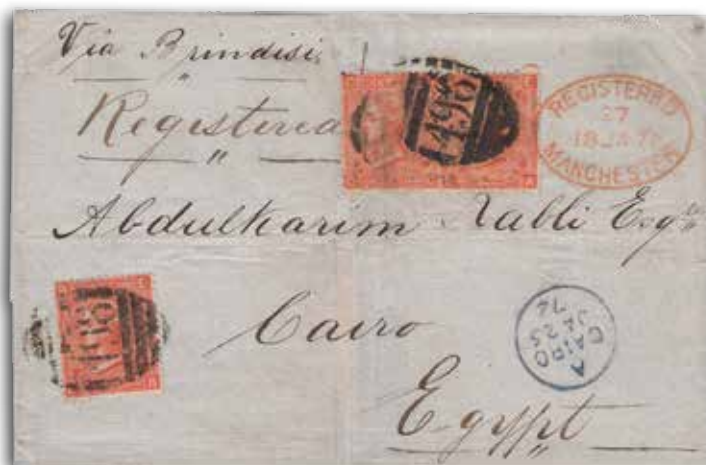 Via Brindisi
Registered
498
REGISTERED
27
18 JA 7
MANCHESTER
Abdulkarim Esqre
498
CAIRO
A
JA 25
74
Cairo
Egypt